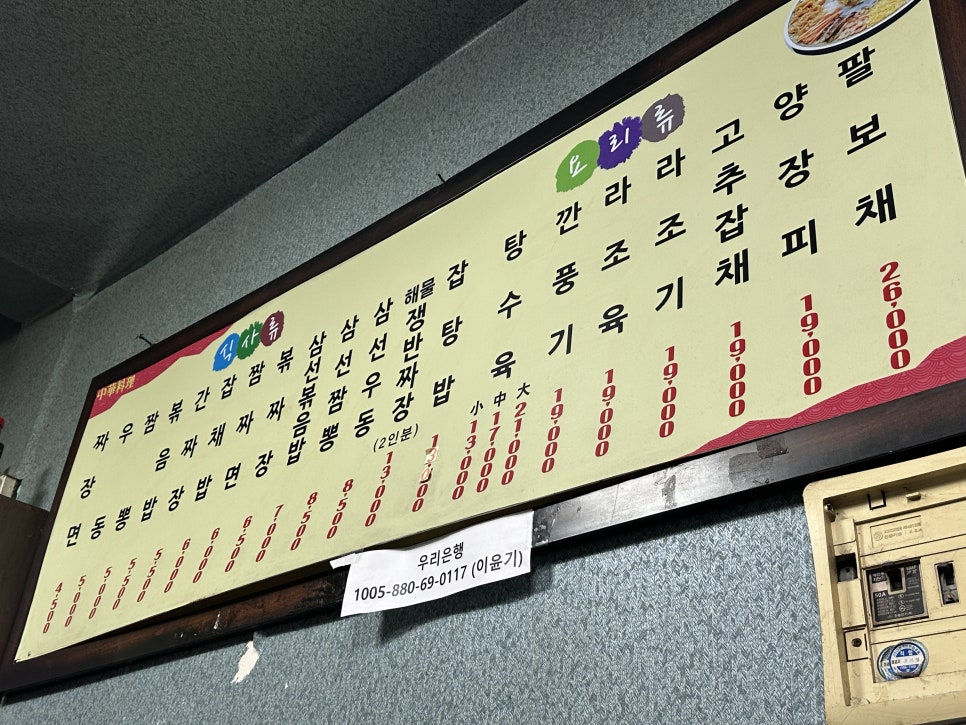 中華料理
식사류
짜장면 4,500
우동 5,000
짬뽕 5,000
볶음밥 5,500
간짜장 5,500
잡채밥 6,000
짬짜면 6,000
볶짜장 6,500
삼선볶음밥 7,000
삼선짬뽕 8,500
삼선우동 8,500
해물쟁반짜장 (2인분) 13,000
잡탕밥
요리류
탕수육 小 13,000 中 17,000 大 21,000
깐풍기 19,000
라조육 19,000
라조기 19,000
고추잡채 19,000
양장피 19,000
팔보채 26,000
우리은행
1005-880-69-0117 (이윤기)
50A